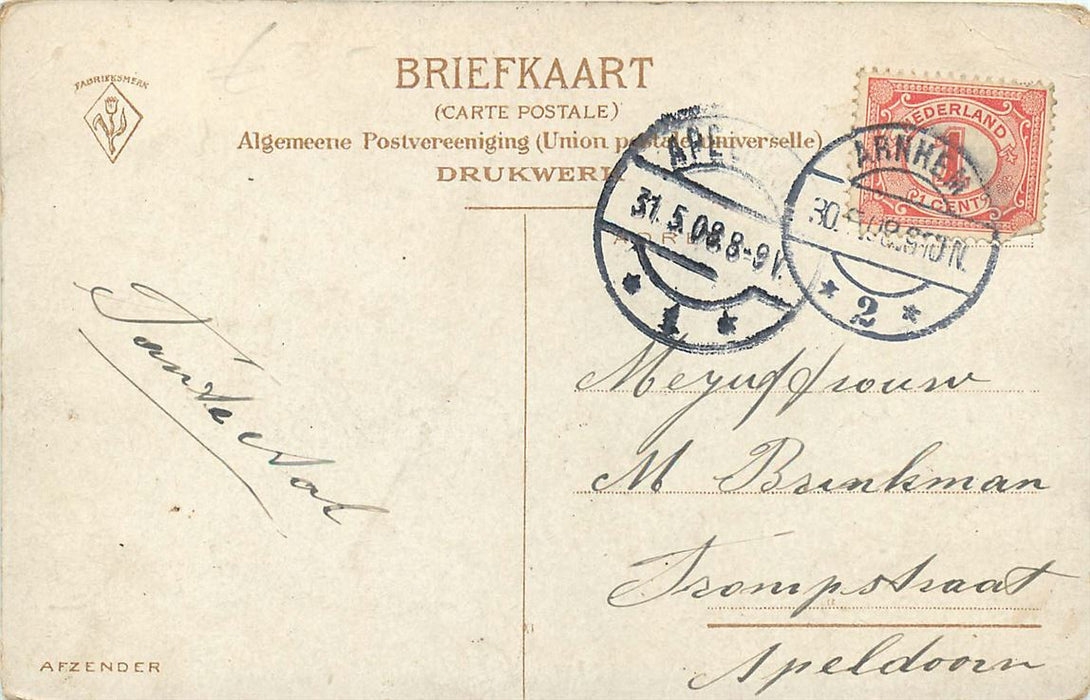 FABRIEKSMERK
BRIEFKAART
(CARTE POSTALE)
Algemeene Postvereeniging (Union postale universelle)
DRUKWERK
NEDERLAND
1
CENT
APEL
31.5.08.8-9V.
1
ARNHEM
30. .08.9-10N.
2
Tante
Mejuffrouw
M Brinkman
Trompstraat
Apeldoorn
AFZENDER